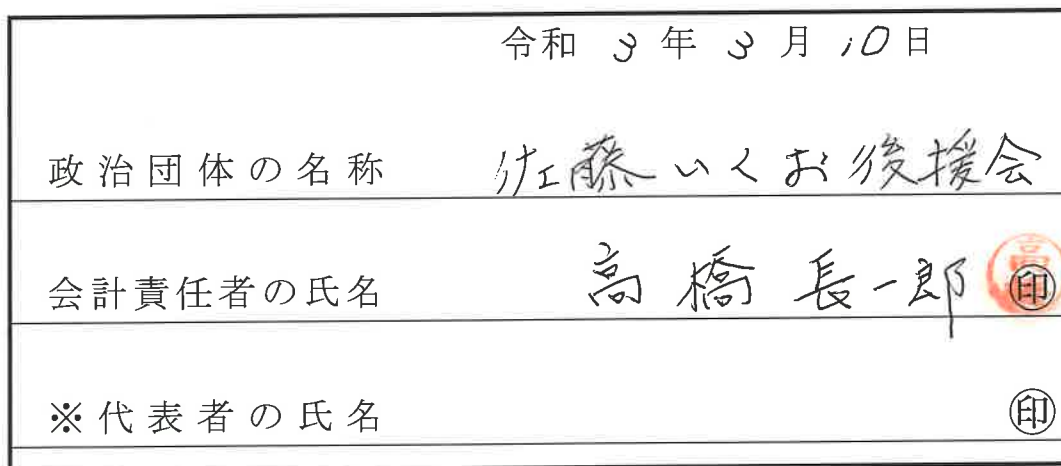 令和 3 年 3 月 10 日
政治団体の名称 佐藤いくお後援会
会計責任者の氏名 高橋 長一郎 ㊞
※代表者の氏名 ㊞